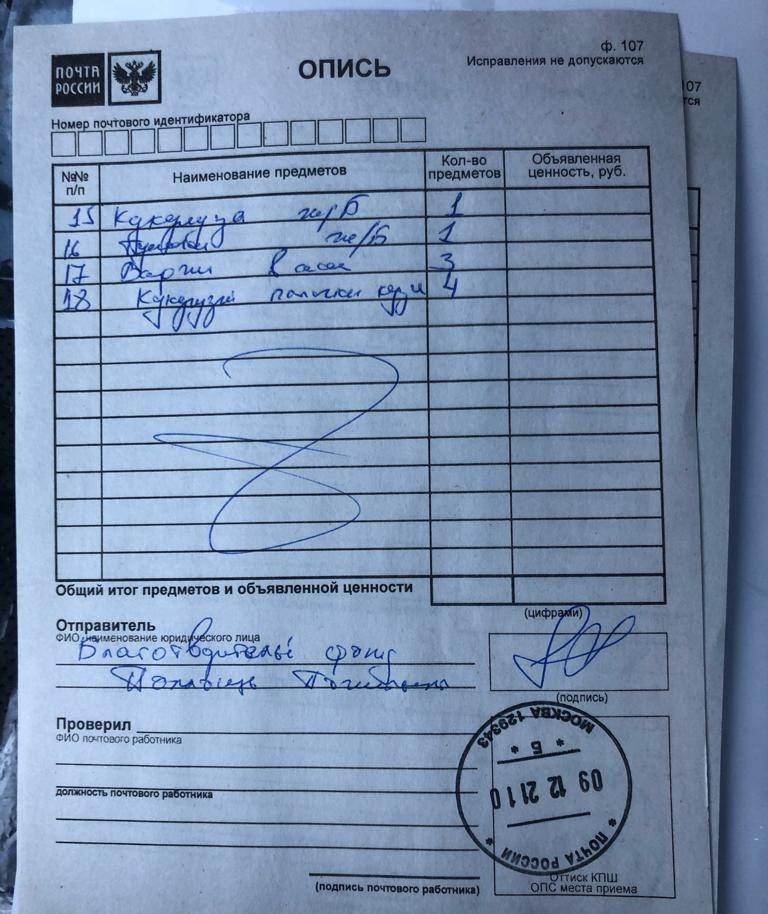 ф. 107
Исправления не допускаются
ПОЧТА
РОССИИ
ОПИСЬ
07
тся
Номер почтового идентификатора
№№ п/п
Наименование предметов
Кол-во предметов
Объявленная ценность, руб.
15 Кукуруза ж/Б 1
16 ж/Б 1
17 в 3
18 4
Общий итог предметов и объявленной ценности
(цифрами)
Отправитель
ФИО, наименование юридического лица
Благотворительный фонд
(подпись)
Проверил
ФИО почтового работника
должность почтового работника
МОСКВА 129343
* Б *
09 12 21 10
* ПОЧТА РОССИИ *
Оттиск КПШ
ОПС места приема
(подпись почтового работника)